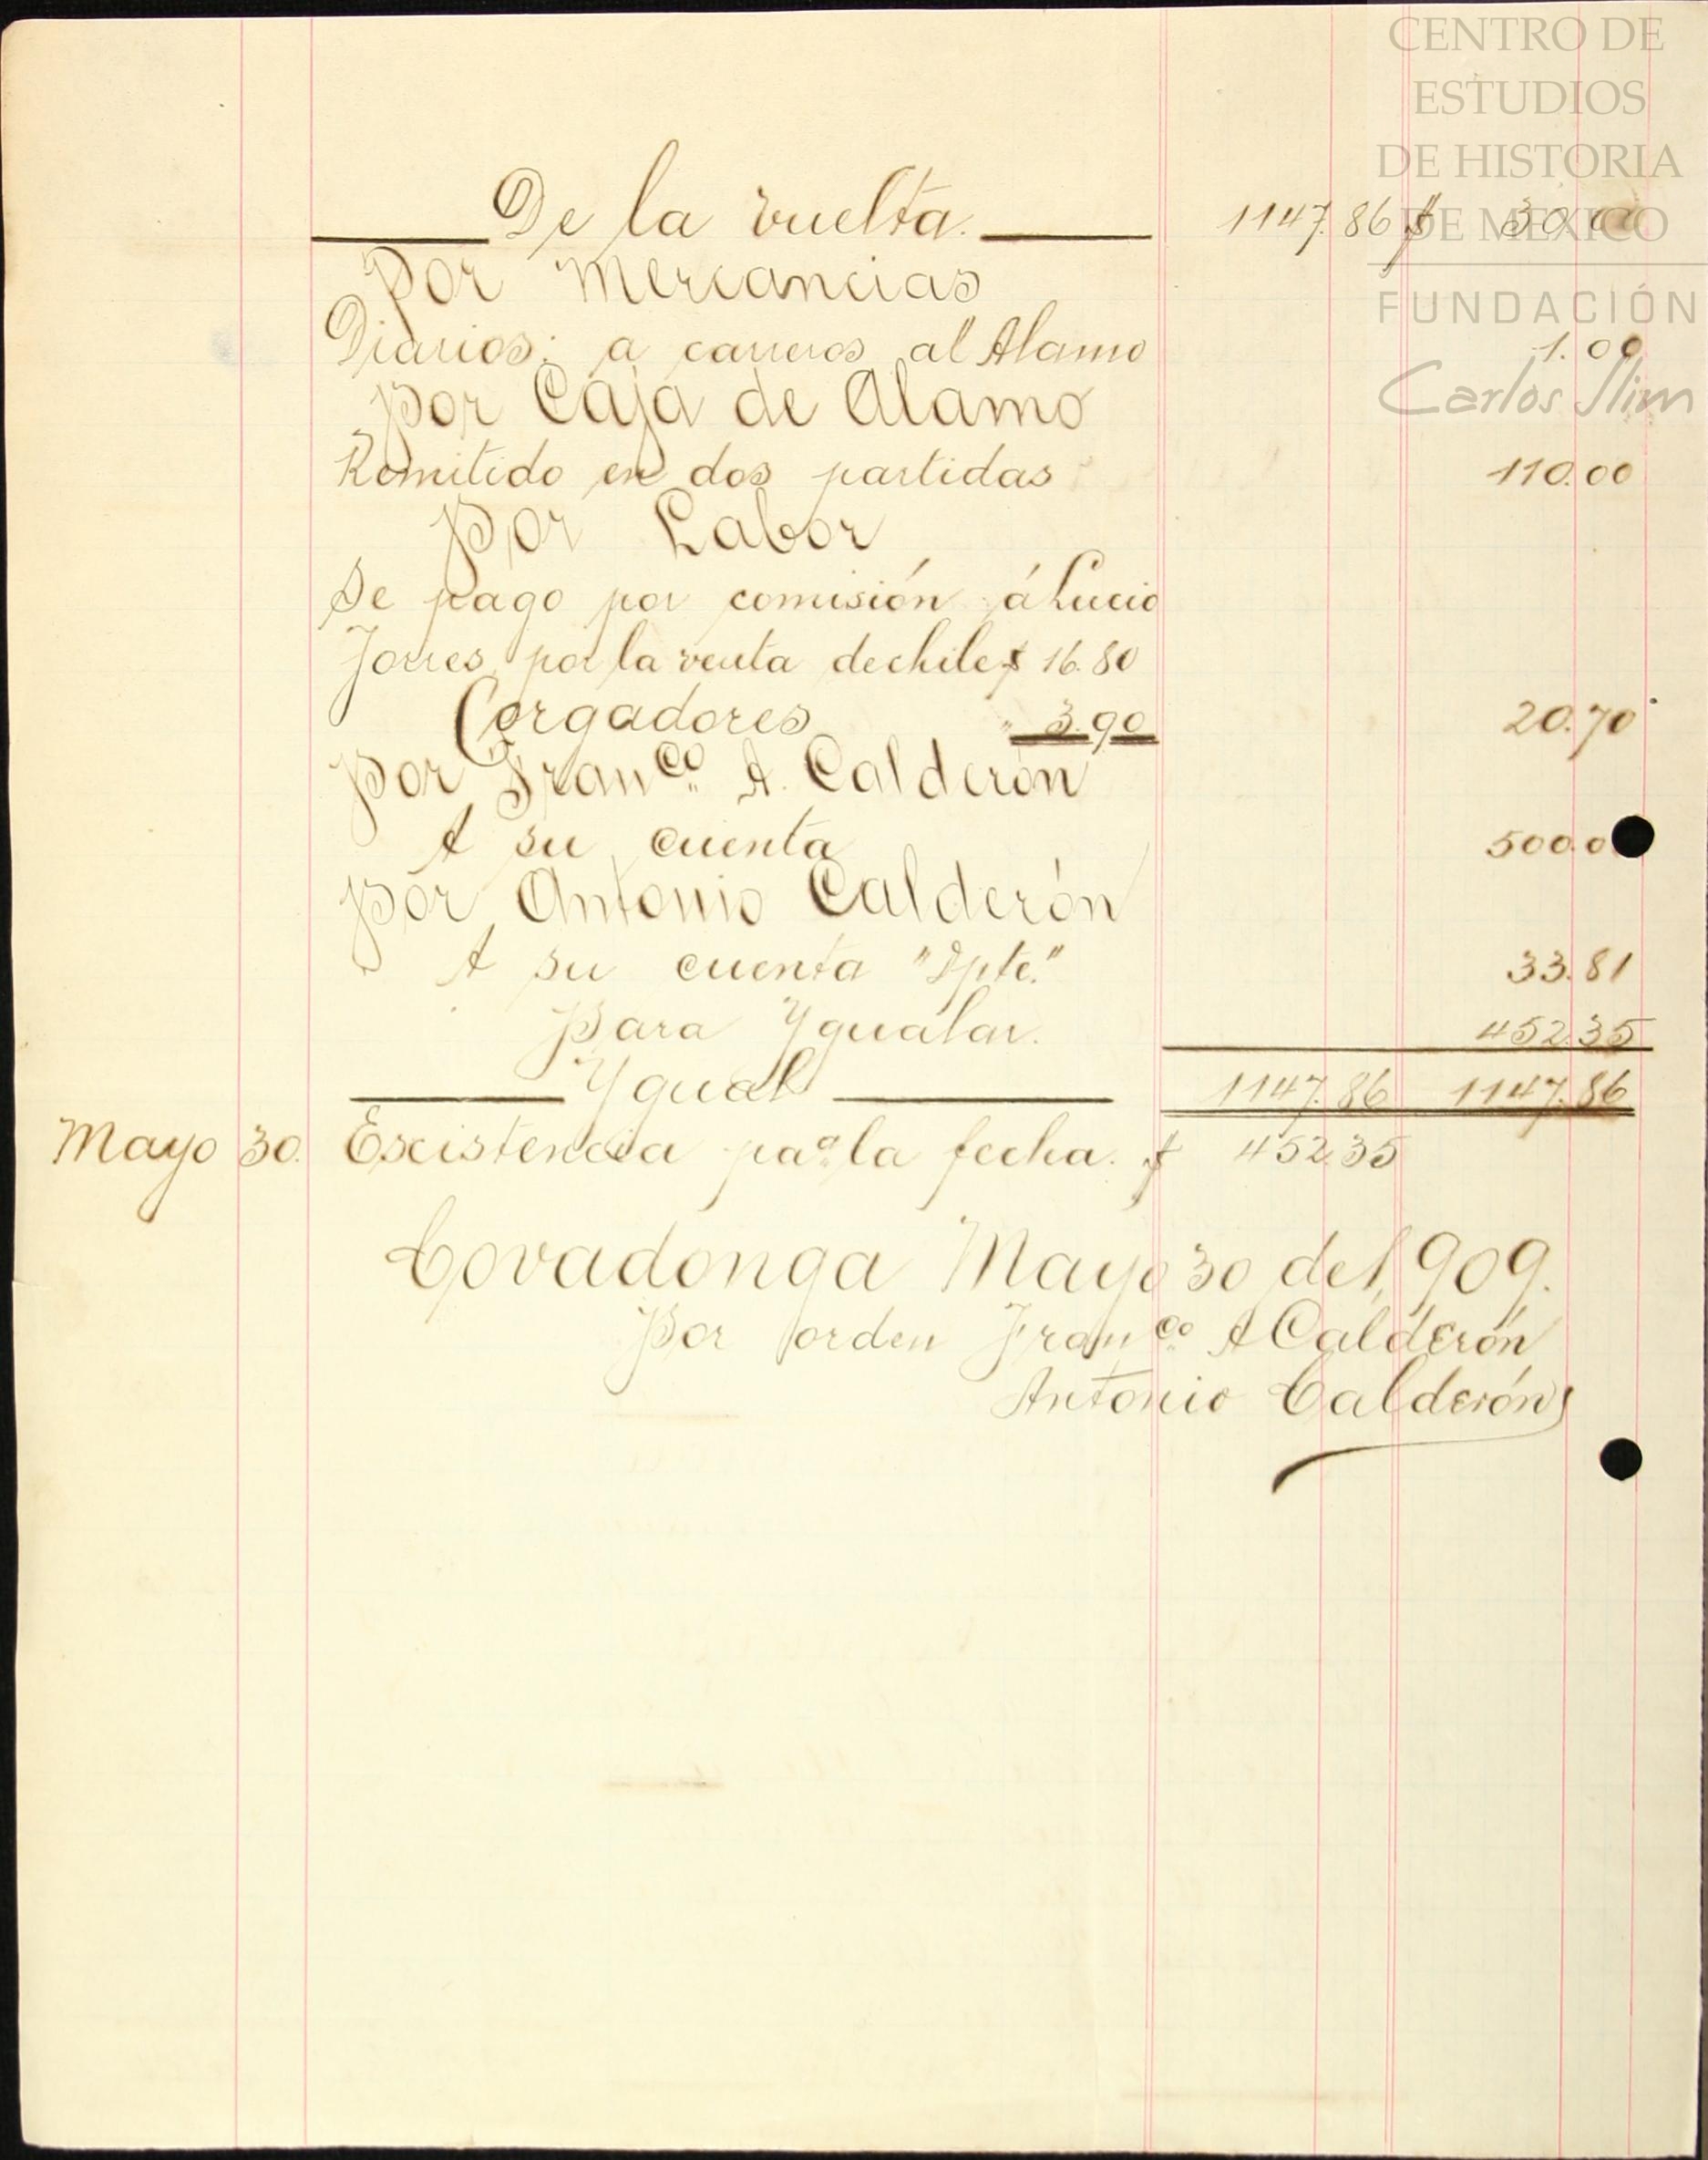 CENTRO DE
ESTUDIOS
DE HISTORIA
DE MÉXICO
FUNDACIÓN
Carlos Slim
De la vuelta. 1147.86 $ 30.00
Por Mercancias
Diarios: a carreros al Alamo 1.00
Por Caja de Alamo
Remitido en dos partidas 110.00
Por Labor
De pago por comisión á Lucio
Torres por la venta de chile $ 16.80
Cargadores " 3.90 20.70
Por Franco. A. Calderón
A su cuenta 500.0
Por Antonio Calderón
A su cuenta "Ypte." 33.81
Para Ygualar. 452.35
Ygual 1147.86 1147.86
Mayo 30. Escistencia paa. la fecha. $ 452.35
Covadonga Mayo 30 de 1,909.
Por orden Franco. A Calderón
Antonio Calderón